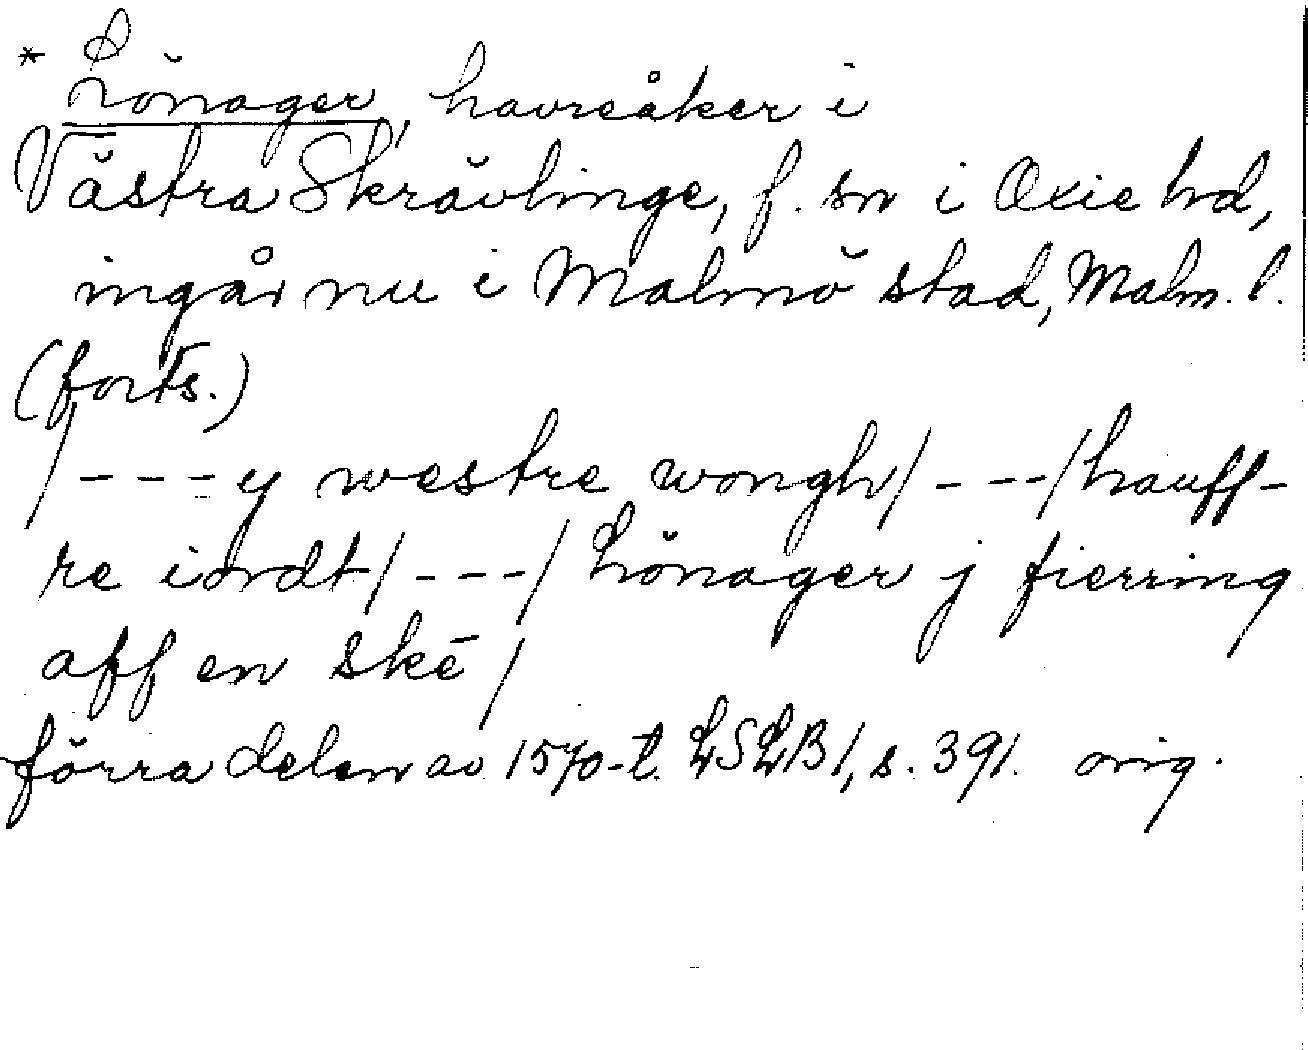 * Lönager, havreåker i
Västra Skrävlinge, f. sn i Oxie hd,
ingår nu i Malmö stad, Malm. l.
(forts.)
/---y westre wongh/---/hauff-
re iordt/---/Lönager j fierring
aff en skē/
förra delen av 1570-t. LSLB1, s. 391. orig.